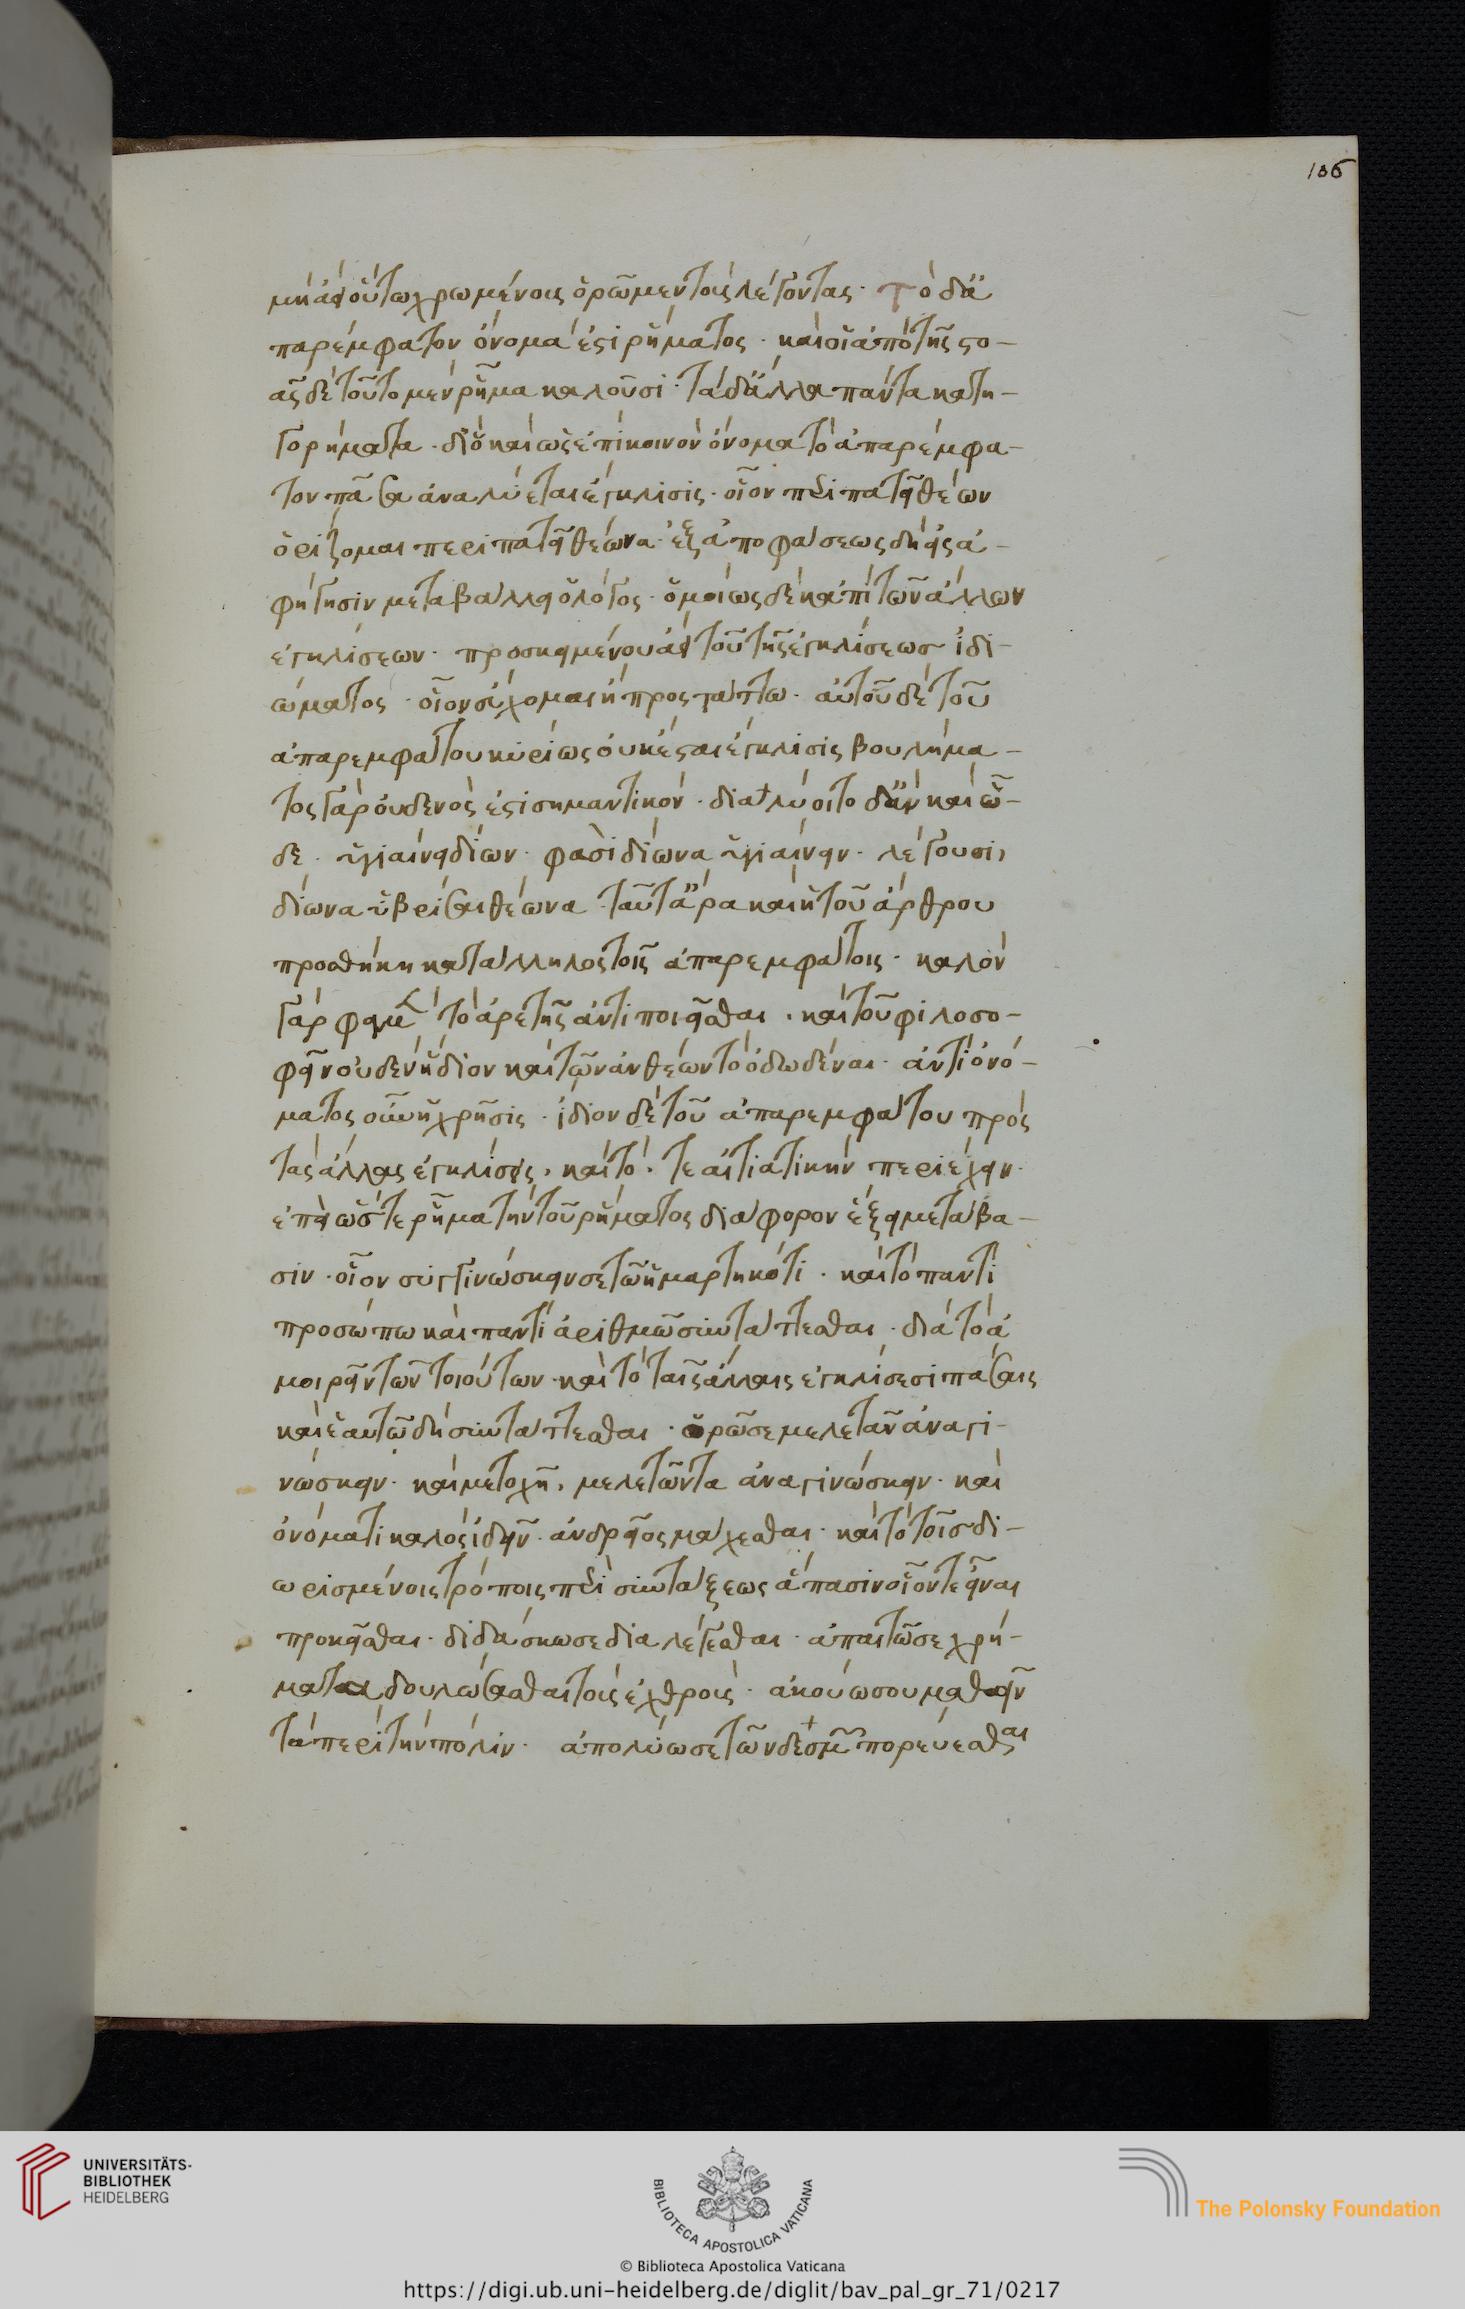 106
μὴ ἀεὶ οὕτω χρωμένοις ὁρῶμεν τοὺς λέγοντας · Τὸ δ' ἀ
παρέμφατον ὄνομά ἐστι ῥήματος · καὶ οἱ ἀπὸ τῆς στο-
ᾶς δὲ τοῦτο μὲν ῥῆμα καλοῦσι · τὰ δ' ἄλλα πάντα κατη-
γορήματα · διὸ καὶ ὡς ἐπίκοινον ὄνομα τὸ ἀπαρέμφα-
τον πᾶσα ἀναλύεται ἔγκλισις · οἷον περιπατεῖ θέων
ὁρίζομαι περιπατεῖν θέωνα · ἐξ ἀποφάσεως δὴ εἰς ἀ-
φήγησιν μεταβάλλει ὁ λόγος · ὁμοίως δὲ κἀπὶ τῶν ἄλλων
ἐγκλίσεων · προσκειμένου ἀεὶ τοῦ τῆς ἐγκλίσεως ἰδι-
ώματος · οἷον εὔχομαι ἢ προστάττω · αὐτοῦ δὲ τοῦ
ἀπαρεμφάτου κυρίως οὐκ ἔσται ἔγκλισις βουλήμα-
τος γὰρ οὐδενός ἐστι σημαντικόν · διαλύοιτο δ' ἂν καὶ ὧ-
δε · ὑγιαίνει δίων · φασὶ δίωνα ὑγιαίνειν · λέγουσι,
δίωνα ὑβρίσαι θέωνα · ταῦτ' ἄρα καὶ ἡ τοῦ ἄρθρου
προσθήκη κατάλληλος τοῖς ἀπαρεμφάτοις · καλὸν
γὰρ φαμὲν τὸ ἀρετῆς ἀντιποιεῖσθαι · καὶ τοῦ φιλοσο-
φεῖν οὐδὲν ἥδιον καὶ τῶν ἀνθέων τὸ ὀδωδέναι · ἀντὶ ὀνό-
ματος οὖν ἡ χρῆσις · ἴδιον δὲ τοῦ ἀπαρεμφάτου πρὸς
τὰς ἄλλας ἐγκλίσεις · καὶ τό · τε αἰτιατικὴν περιέχειν ·
ἐπεὶ ὥστε ῥῆμα τὴν τοῦ ῥήματος διάφορον ἕξει μετάβα-
σιν · οἷον συγγινώσκειν σε τῶ ἡμαρτηκότι · καὶ τὸ παντὶ
προσώπω καὶ παντὶ ἀριθμῶ συντάττεσθαι · διὰ τὸ ἀ
μοιρεῖν τῶν τοιούτων · καὶ τὸ ταῖς ἄλλαις ἐγκλίσεσι πάσαις
καὶ ἑαυτῶ δὴ συντάττεσθαι · ὁρῶ σε μελετᾶν ἀναγι-
νώσκειν · καὶ μετοχῆ, μελετῶντα ἀναγινώσκειν · καὶ
ὀνόματι καλὸς ἰδεῖν · ἀνδρεῖος μάχεσθαι · καὶ τὸ τοῖς δι-
ωρισμένοις τρόποις περὶ συντάξεως ἅπασιν οἷόν τε εἶναι
προκεῖσθαι · διδάσκω σε διαλέγεσθαι · ἀπαιτῶ σε χρή-
ματα δουλώσασθαι τοὺς ἐχθρούς · ἀκούω σου μαθεῖν
τὰ περὶ τὴν πόλιν · ἀπολύω σε τῶν δεσμῶν πορεύεσθαι
UNIVERSITÄTS-
BIBLIOTHEK
HEIDELBERG
BIBLIOTECA APOSTOLICA VATICANA
The Polonsky Foundation
© Biblioteca Apostolica Vaticana
https://digi.ub.uni-heidelberg.de/diglit/bav_pal_gr_71/0217